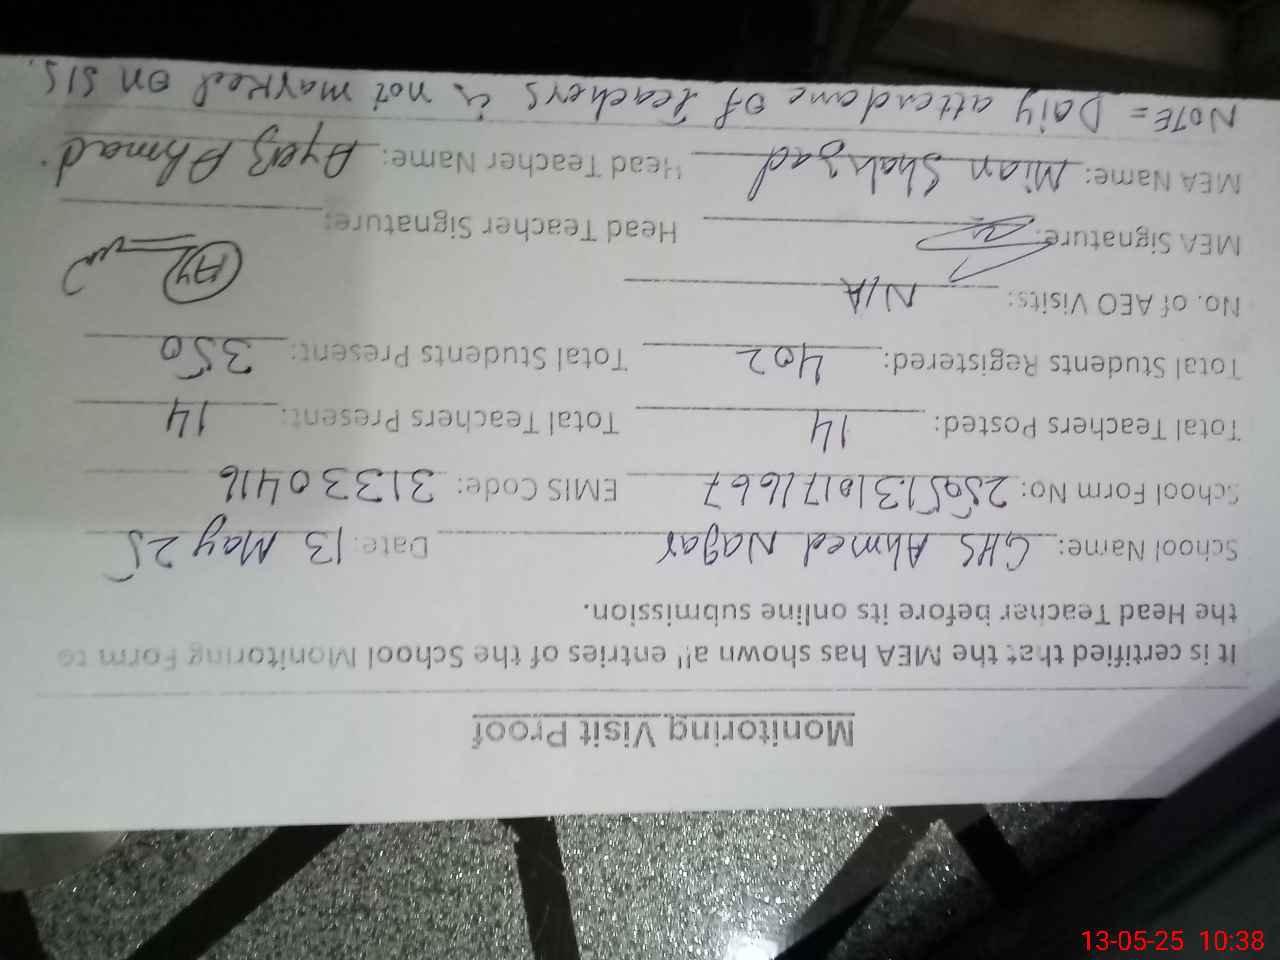 Monitoring Visit Proof
It is certified that the MEA has shown all entries of the School Monitoring Form to
the Head Teacher before its online submission.
School Name: GHS Ahmed Nagar Date: 13 May 25
School Form No: 25051310171667 EMIS Code: 31330416
Total Teachers Posted: 14 Total Teachers Present: 14
Total Students Registered: 402 Total Students Present: 350
No. of AEO Visits: N/A
MEA Signature: Head Teacher Signature:
MEA Name: Mian Shahzad Head Teacher Name: Ayaz Ahmad.
NOTE = Daiy attendane of teachers is not marked on SIS.
13-05-25 10:38